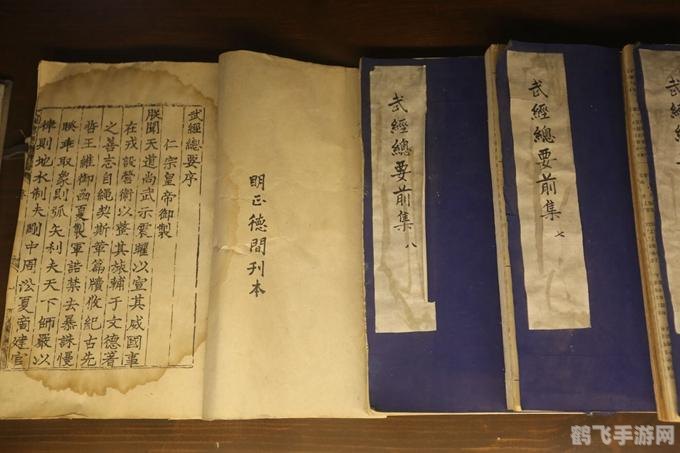 武經總要序
仁宗皇帝御製
朕聞天道尚武示震曜以宣其威國事
在戎設營衛以整其旅輔于文德著
之善志自繩契斯章篇牘攸紀古先
哲王維御西夏製軍詰禁去暴誅慢
睽乖取象則弧矢利夫天下師嚴以
律則地水制夫剛中周訟夏啇建官
明正德間刊本
武經總要前集 八
武經總要前集 七
武經總
鹤飞手游网